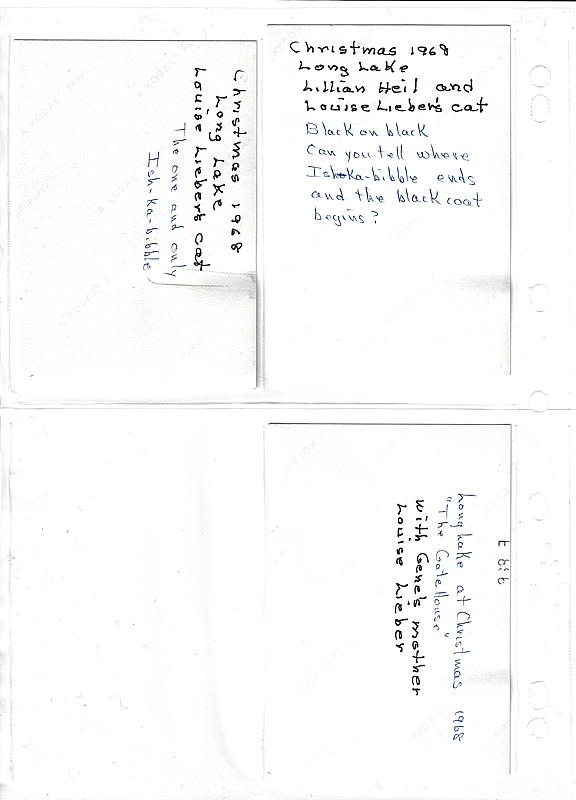 Christmas 1968
Long Lake
Louise Lieber's cat
The one and only
Ish-ka-bibble
Christmas 1968
Long Lake
Lillian Heil and
Louise Lieber's cat
Black on black
Can you tell where
Ish-ka-bibble ends
and the black coat
begins?
Long Lake at Christmas 1968
"The Gate House"
with Gene's mother
Louise Lieber